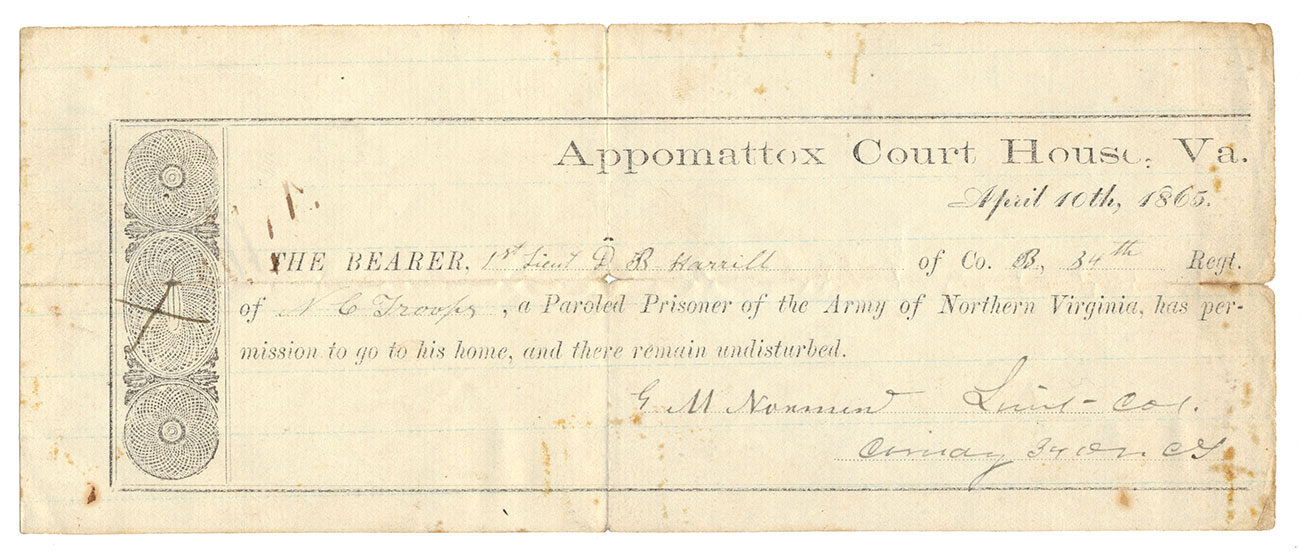 Appomattox Court House, Va.
April 10th, 1865.
THE BEARER, 1st Lieut D B Harrill of Co. B, 34th Regt.
of N C Troops, a Paroled Prisoner of the Army of Northern Virginia, has per-
mission to go to his home, and there remain undisturbed.
G M Norment Lieut-Col.
Comdg 34th N. C T